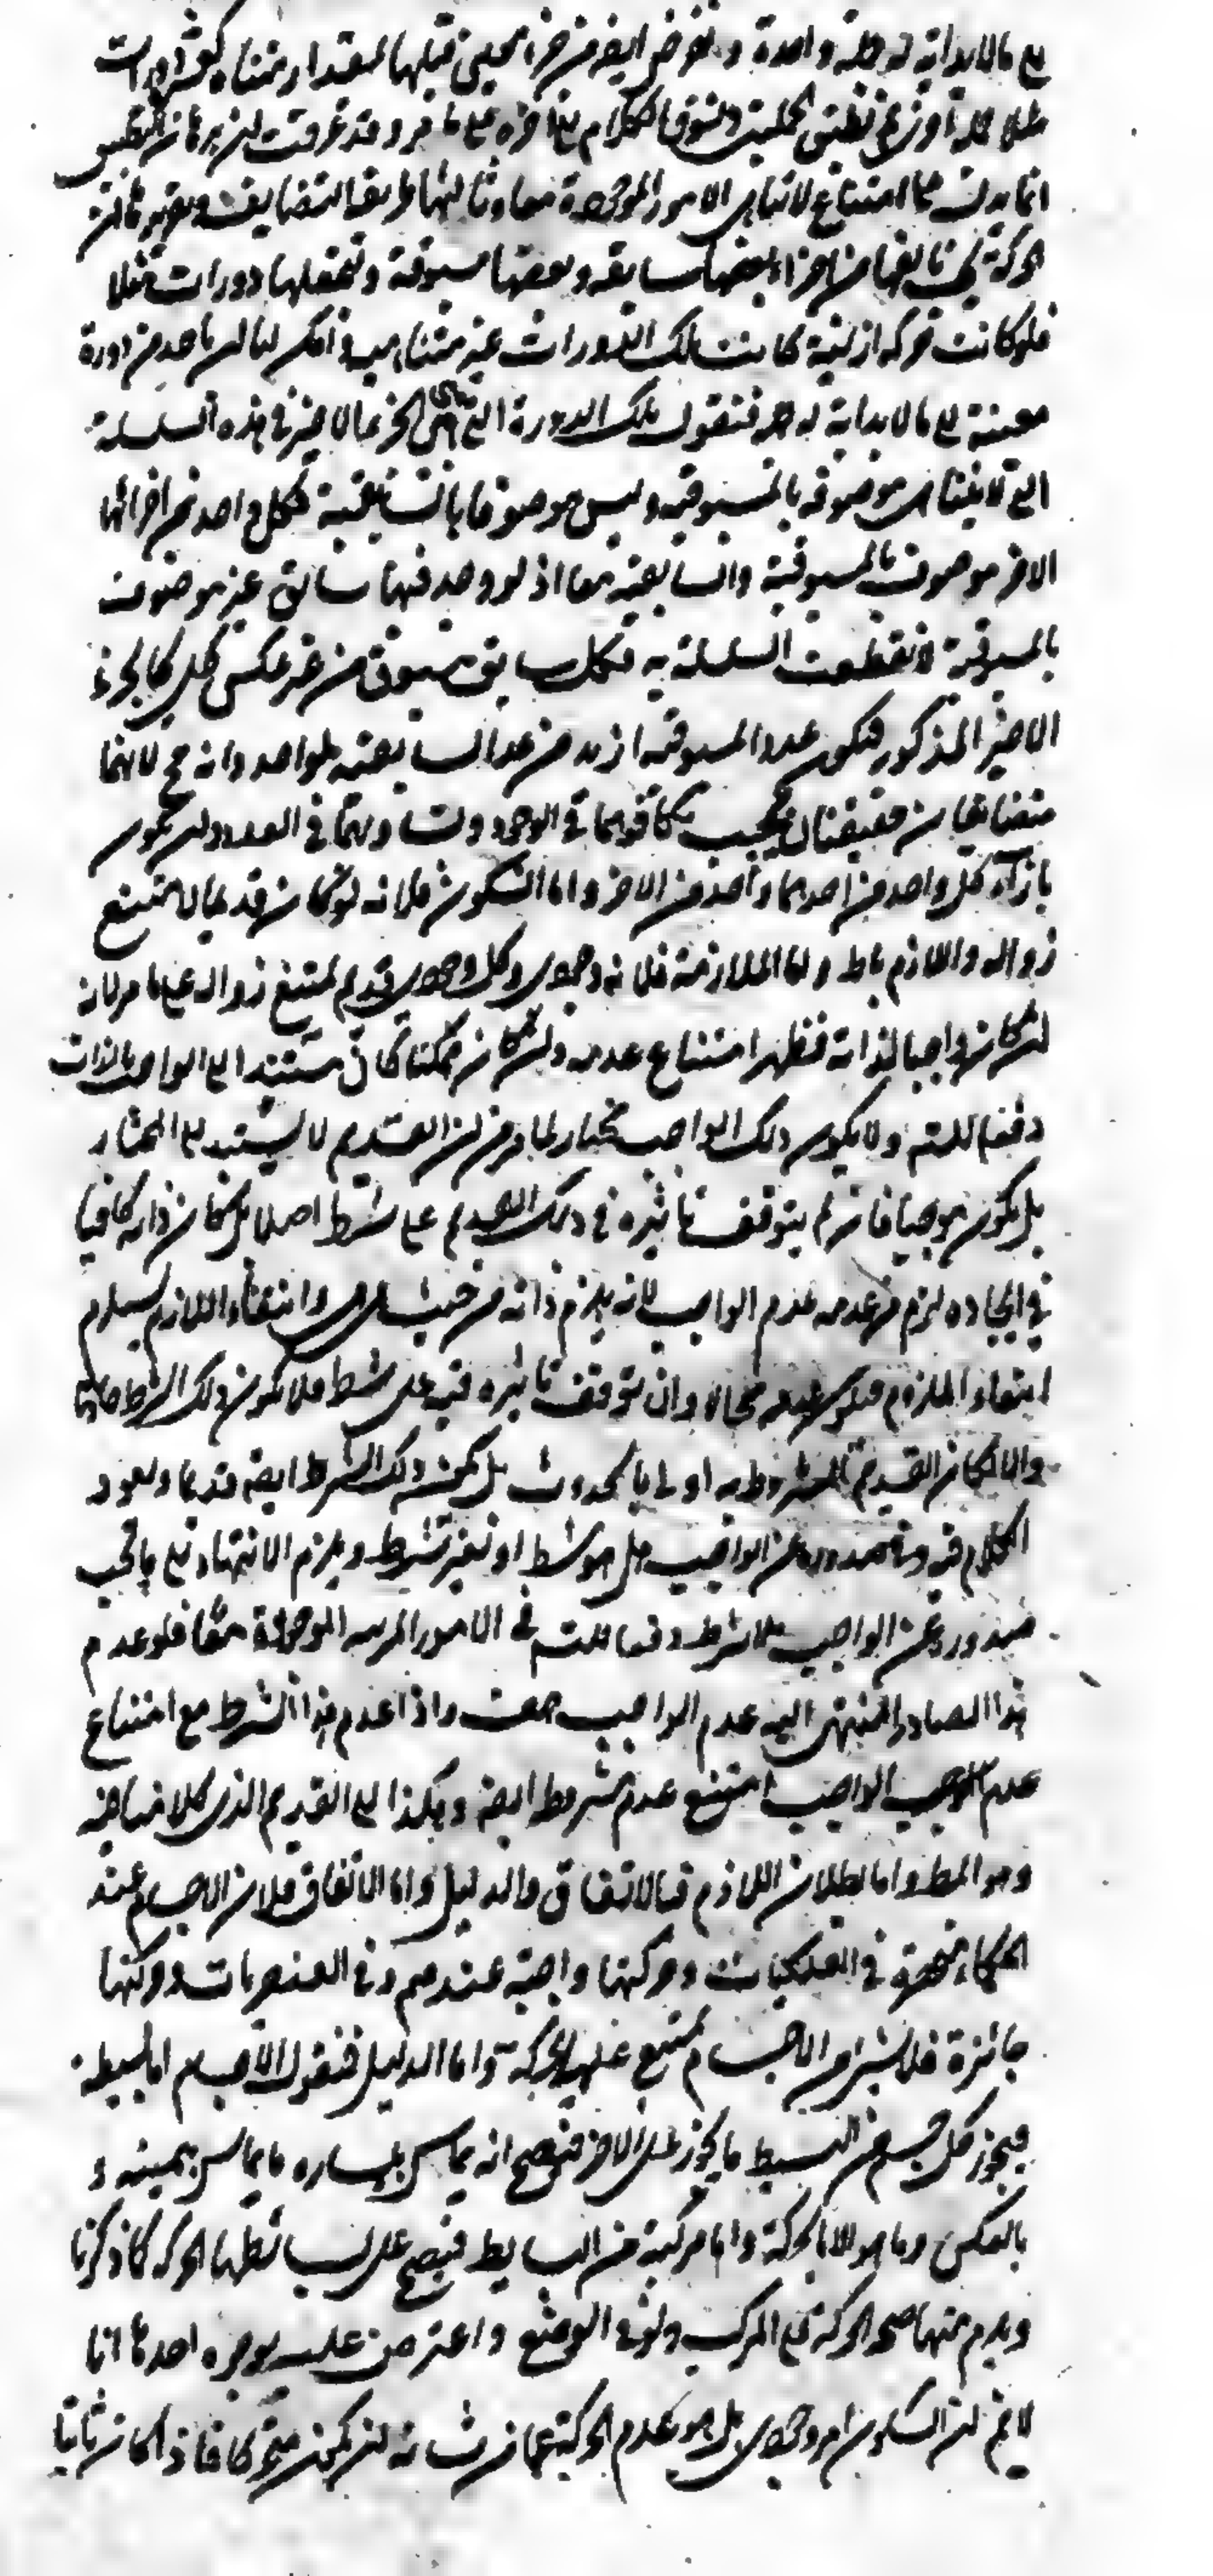 الى مالا بداية له جملة واحدة ونفرض ايضا من جزء معين قبلها بمقدار متناه كعشر دورات
مثلا جملة اخرى ثم نطبق الجملتين ونسوق الكلام الى آخره على ما مر وقد عرفت ان برهان التطبيق
انما يدل على امتناع لا تناهى الامور الموجودة معا وثالثها طريقة التضايف وتقريره هنا ان
الحركة يجب تألفها من اجزاء بعضها سابقة وبعضها مسبوقة ونجعلها دورات مثلا
فلو كانت حركة ازلية كانت تلك الدورات غير متناهية وامكن لنا ان نأخذ من دورة
معينة الى مالا بداية له جملة فنقول تلك الدورة التي هي الجزء الاخير في هذه السلسلة
التي لا تتناهى موصوفة بالمسبوقية وليس موصوفا بالسابقية فكل واحد من اجزائها
الاخر موصوف بالمسبوقية والسابقية معا اذ لو وجد فيها سابق غير موصوف
بالمسبوقية لانقطعت السلسلة به فكل سابق مسبوق من غير عكس كلي كالجزء
الاخير المذكور فيكون عدد المسبوقية ازيد من عدد السابقية بواحد وانه مح لانهما
متضايفان حقيقيان فيجب تكافؤهما في الوجود وتساويهما في العدد وان يكون
بازاء كل واحد من احدهما واحد من الاخر واما السكون فلانه لو كان قديما لامتنع
زواله واللازم باطل اما الملازمة فلانه وجودي وكل وجودي قديم يمتنع زواله على ما مر لانه
ان كان واجبا لذاته فظهر امتناع عدمه وان كان ممكنا كان مستندا الى الواجب بالذات
دفعا للتسلسل ولا يكون ذلك الواجب مختارا لما مر من ان القديم لا يستند الى المختار
بل يكون موجبا فان لم يتوقف تأثيره في ذلك القديم على شرط اصلا بل كان ذاته كافيا
في ايجاده لزم من عدمه عدم الواجب لانه يلزم ذاته من حيث هي وانتفاء اللازم يستلزم
انتفاء الملزوم فيكون عدمه محالا وان توقف تأثيره فيه على شرط فلا يكون ذلك الشرط حادثا
والا لكان القديم المشروط به اولى بالحدوث بل يكون ذلك الشرط ايضا قديما ويعود
الكلام فيه وفي صدوره عن الواجب هل هو بشرط او بغير شرط ويلزم الانتهاء الى ما يجب
صدوره عن الواجب بلا شرط دفعا للتسلسل في الامور المرتبة الموجودة معا فلو عدم
هذا الصادر المنتهى اليه عدم الواجب هف واذا عدم هذا الشرط مع امتناع
عدم الواجب امتنع عدم مشروطه ايضا وهكذا الى القديم الذي كلامنا فيه
وهو المط واما بطلان اللازم فبالاتفاق والدليل اما الاتفاق فلان الاجسام عند
الحكماء منحصرة في الفلكيات وحركتها واجبة عندهم وفي العنصريات وحركتها
جائزة فلا شئ من الاجسام يمتنع عليه الحركة واما الدليل فنقول الاجسام اما بسيطة
فيجوز على كل جزء من البسيط ما يجوز على الاخر فيصح ان يماس بيساره ما يماس بيمينه و
بالعكس وما هو الا بالحركة واما مركبة من البسايط فيصح على بسائطها الحركة كما ذكرنا
ويلزم منها صحة الحركة على المركب ولو في الوضع واعترض عليه بوجوه احدها انا
لا نم ان السكون امر وجودي بل هو عدم الحركة عما من شانه ان يكون متحركا فاذا كان ثابتا